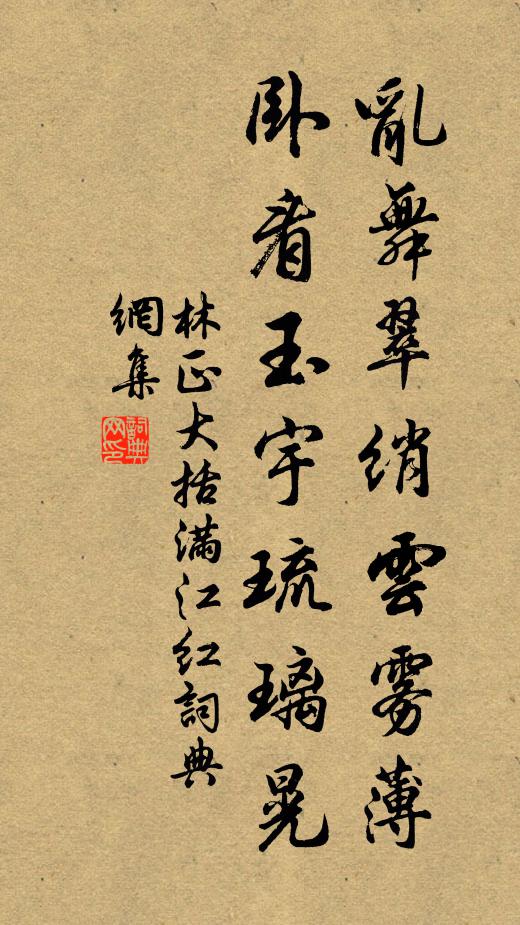 亂舞翠綃雲霧薄
卧看玉宇琉璃晃
林正大括满江红詞典
網集
詞典
网印